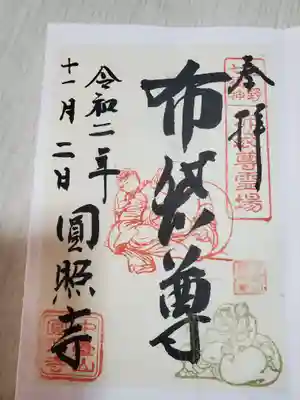 奉拝
布袋尊
圓照寺
令和二年
十一月二日